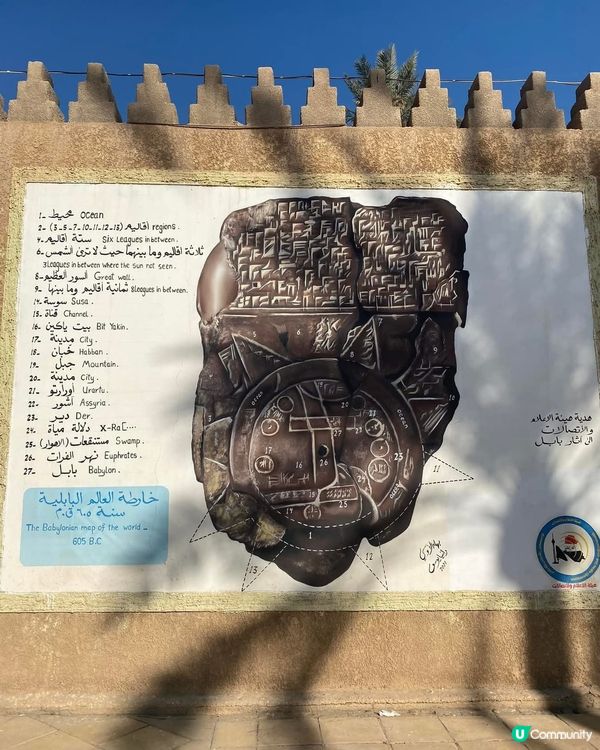 1- محيط ocean
2- (3-5-7-10-11-12-13) أقاليم regions.
4- ستة اقاليم Six Leagues in between.
6- ثلاثة اقاليم وما بينهما حيث لا ترى الشمس
3leagues in between where the sun not seen.
8- السور العظيم Great wall.
9- ثمانية اقاليم وما بينها 8leagues in between.
14- سوسة Susa.
15- قناة Channel.
16- بيت ياكين Bit Yakin.
17- مدينة City.
18- خبان Habban.
19- جبل Mountain.
20- مدينة City.
21- أورارتو Urartu.
22- آشور Assyria.
23- دير Der.
24- دلالة مياة X-Ra[....
25- مستنقعات (الاهوار) Swamp.
26- نهر الفرات Euphrates.
27- بابل Babylon.
خارطة العالم البابلية
سنة ٦٠٥ ق.م
The Babylonian map of the world _
605 B.C
هدية هيئة الاعلام
والاتصالات
الى آثار بابل
ocean
ocean
5
6
7
9
19
20
18
22
27
17
16
26
23
25
14
24
29
11
1
12
13
2021
هيئة الاعلام والاتصالات
U Community